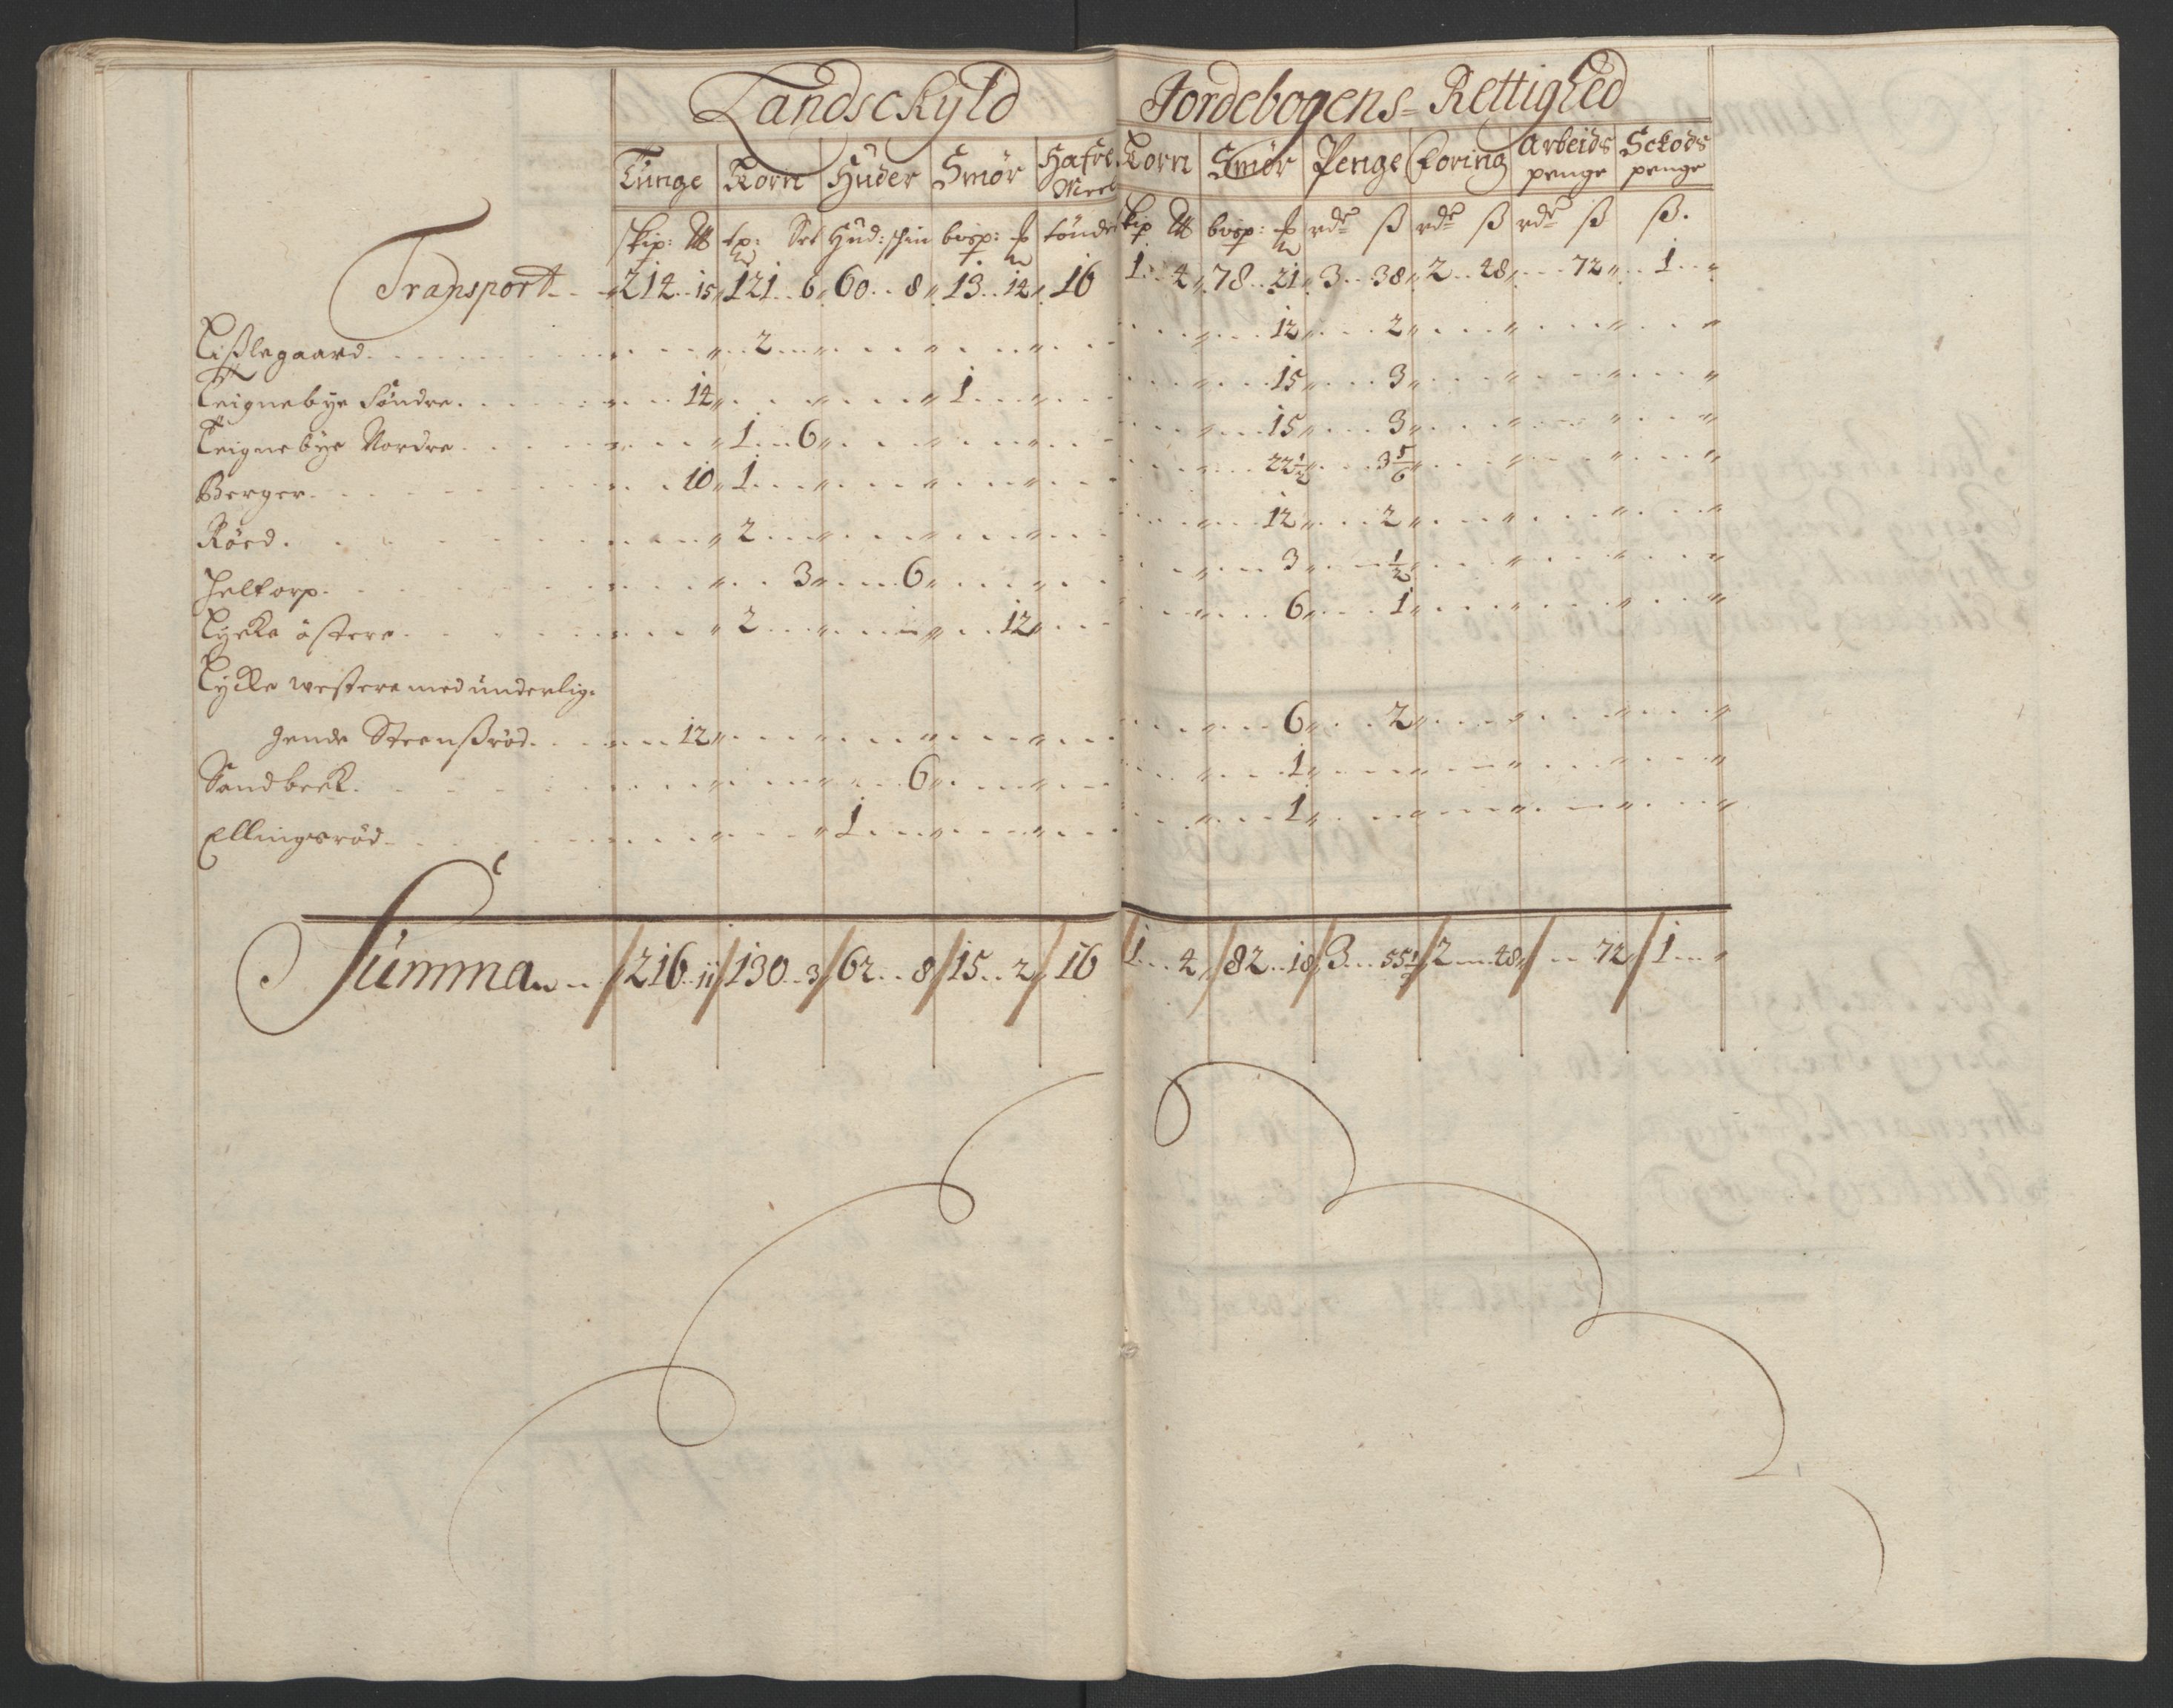 Landsckyld Jordebogens= Rettighed
Tunge Korn Huder Smör Hafre Meel Korn Smör Penge Foring Arbeids penge Sckods penge
skip: ℔ tp: Set Hud: skin bvsp: ℔ tönde skip ℔ bvsp: ℔ rdr ß rdr ß rdr ß ß.
Transport 214 15 121 6 60 8 13 14 16 1 4 78 21 3 38 2 48 72 1
Tißlegaard 2 12 2
Teignebye Söndre 14 1 15 3
Teignebye Nordre 1 6 15 3
Berger 10 1 22½ 3 5/6
Röed 2 12 2
Heltorp 3 6 3 ½
Lycke östere 2 12 6 1
Lycke westere med underlig=
gende Steenßröd 12 6 2
Sandbeck 6 1
Ellingsröd 1 1
Summa 216 11 130 3 62 8 15 2 16 1 4 82 18 3 55½ 2 48 72 1